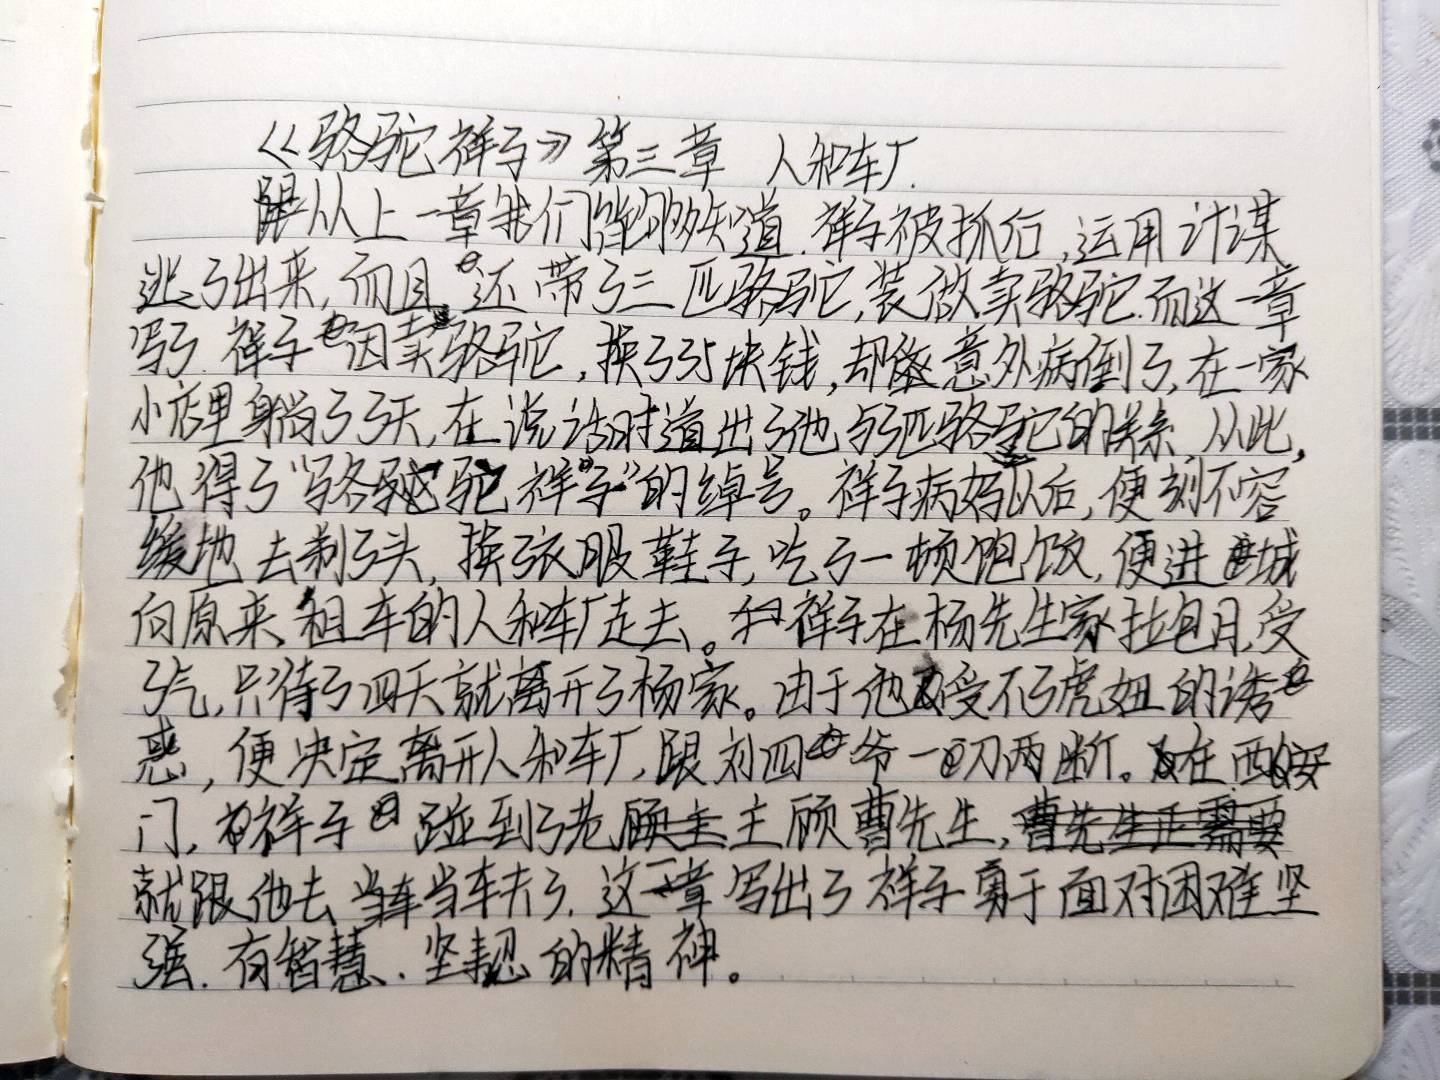 《骆驼祥子》第三章 人和车厂.
从上一章我们能够知道.祥子被抓后,运用计谋
逃了出来,而且还带了三匹骆驼,装做卖骆驼.而这一章
写了.祥子因卖骆驼,换了35块钱,却意外病倒了,在一家
小店里躺了3天,在说话时道出了他与3匹骆驼的关系,从此,
他得了"骆驼祥子"的绰号。祥子病好以后,便刻不容
缓地去剃了头,换了衣服鞋子,吃了一顿饱饭,便进城
向原来租车的人和车厂走去。祥子在杨先生家拉包月,受
了气,只待了四天就离开了杨家。由于他受不了虎妞的诱
惑,便决定离开人和车厂,跟刘四爷一刀两断。在西安
门,祥子碰到了老主顾曹先生,
就跟他去当车夫了.这一章写出了祥子勇于面对困难坚
强.有智慧、坚韧的精神。